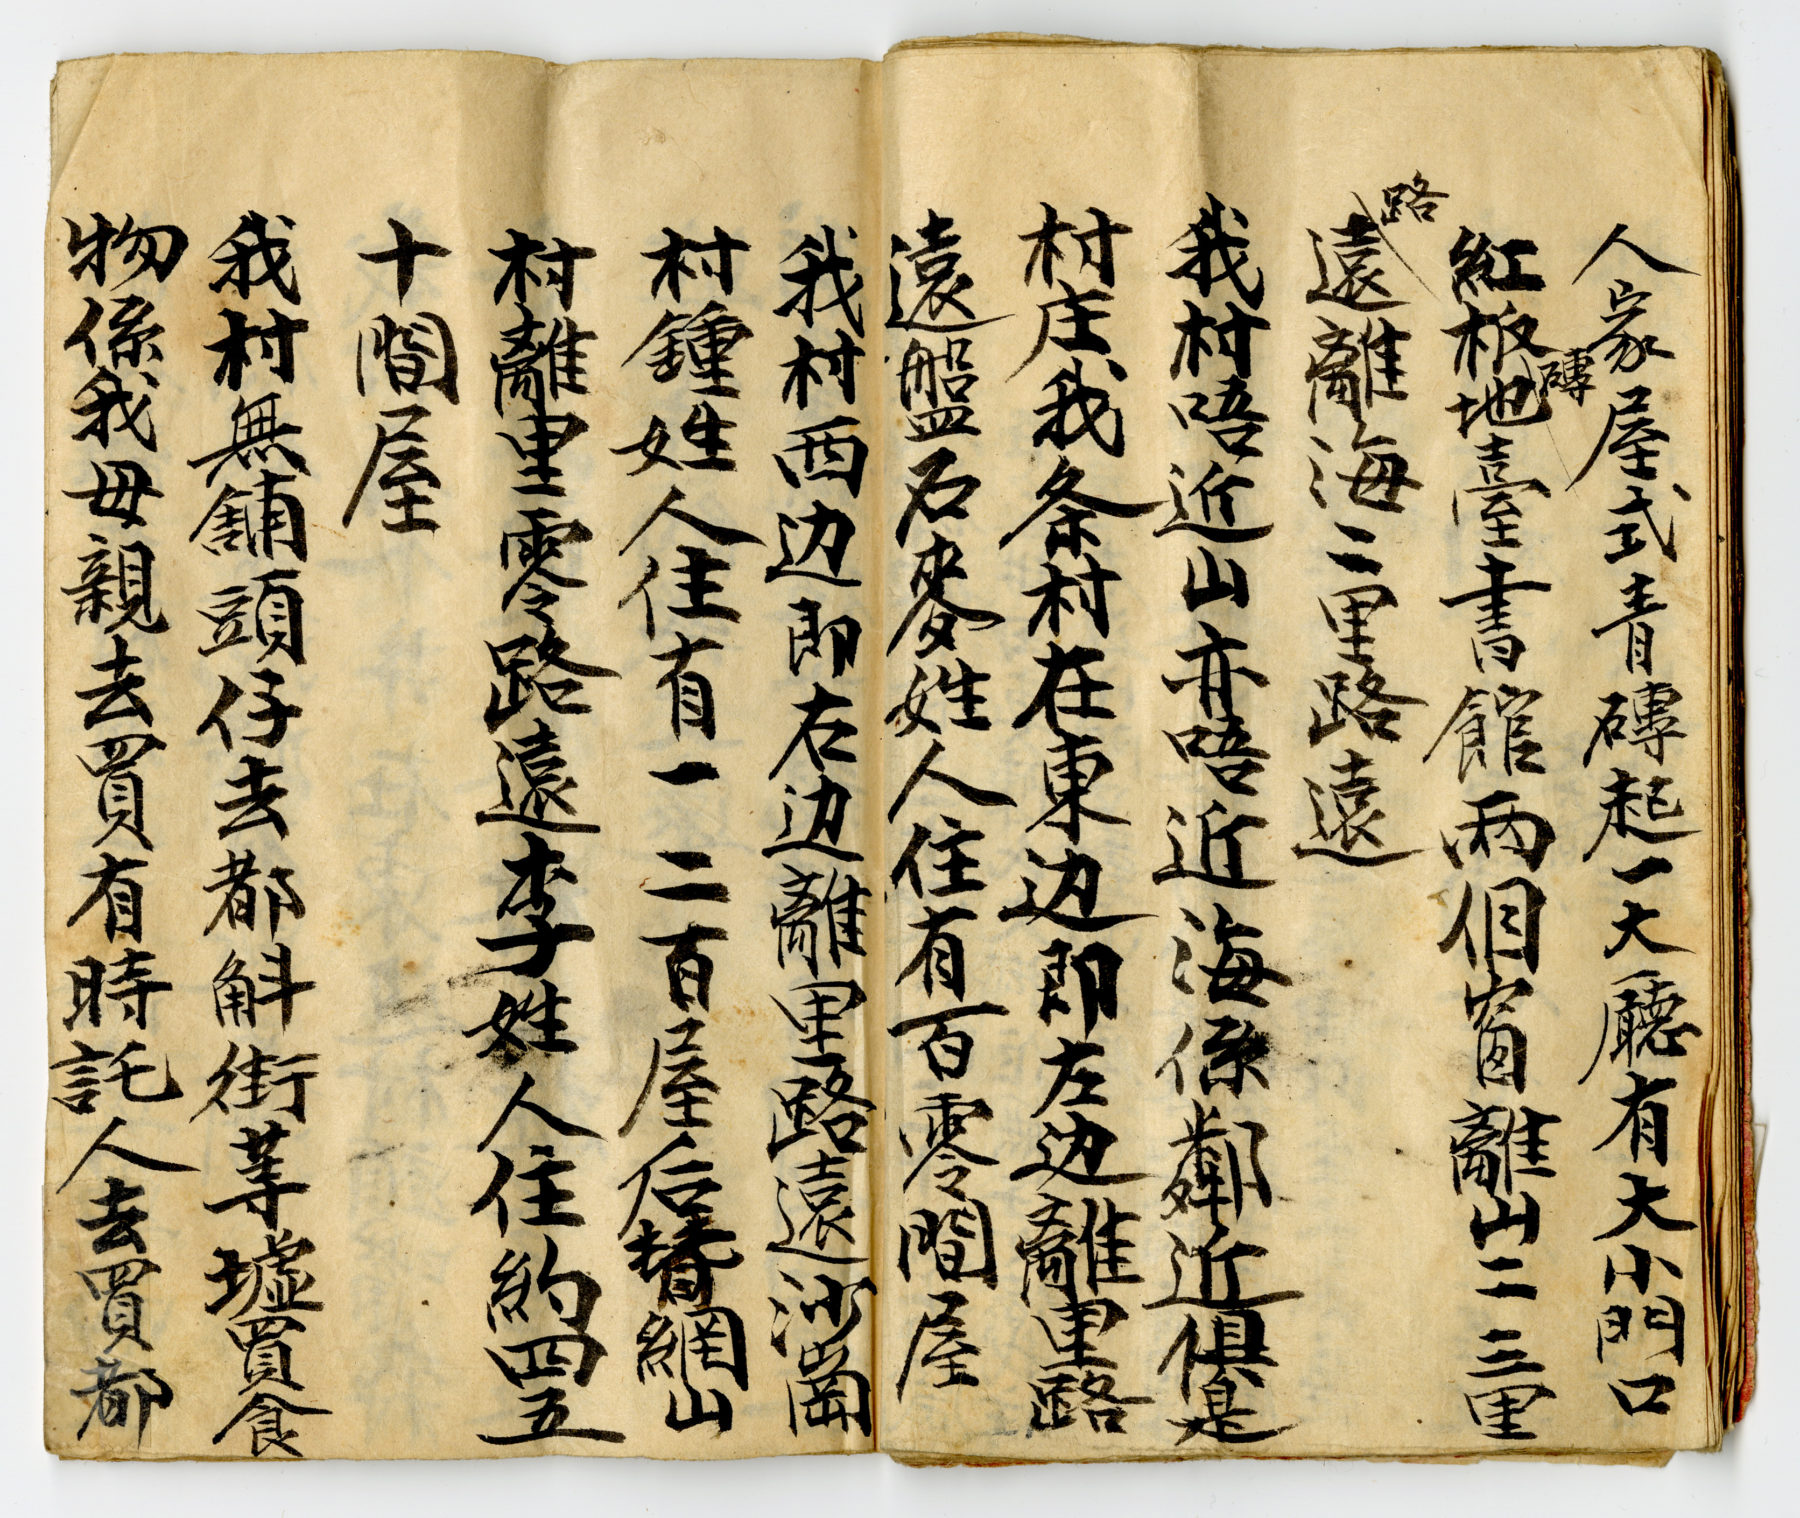 人家屋式青磚起一大廳有大小門口
紅板磚地臺書館兩個窗離山二三里
路遠離海二里路遠
我村唔近山亦唔近海係鄰近俱是
村庄我条村在東边即左边離里路
遠盤石麥姓人住有百零間屋
我村西边即右边離里路遠沙崗
村鍾姓人住有一二百屋后背網山
村離里零路遠李姓人住約四五
十間屋
我村無舖頭仔去都斛街等墟買食
物係我母親去買有時託人去買都